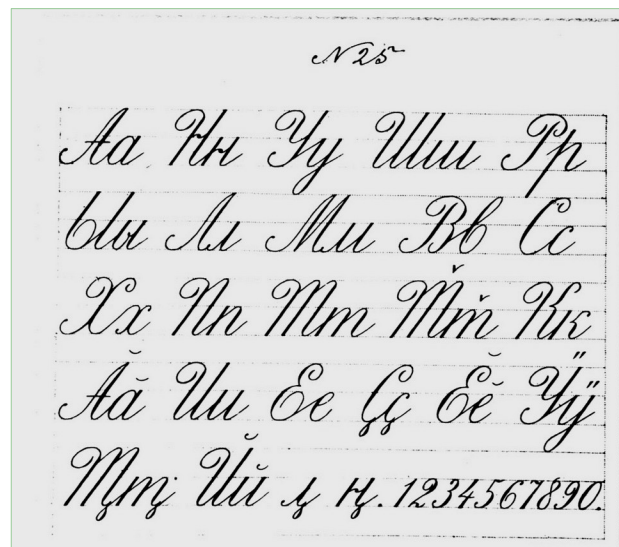 № 25
Аа Нн Уу Шш Рр
Ыы Лл Мм Вв Сс
Хх Пп Тт Т̌т̌ Кк
Ӑӑ Ии Ее Ҫҫ Ӗӗ Ӳӳ
Т̡т̡ Йй ԡ ԣ. 1234567890.